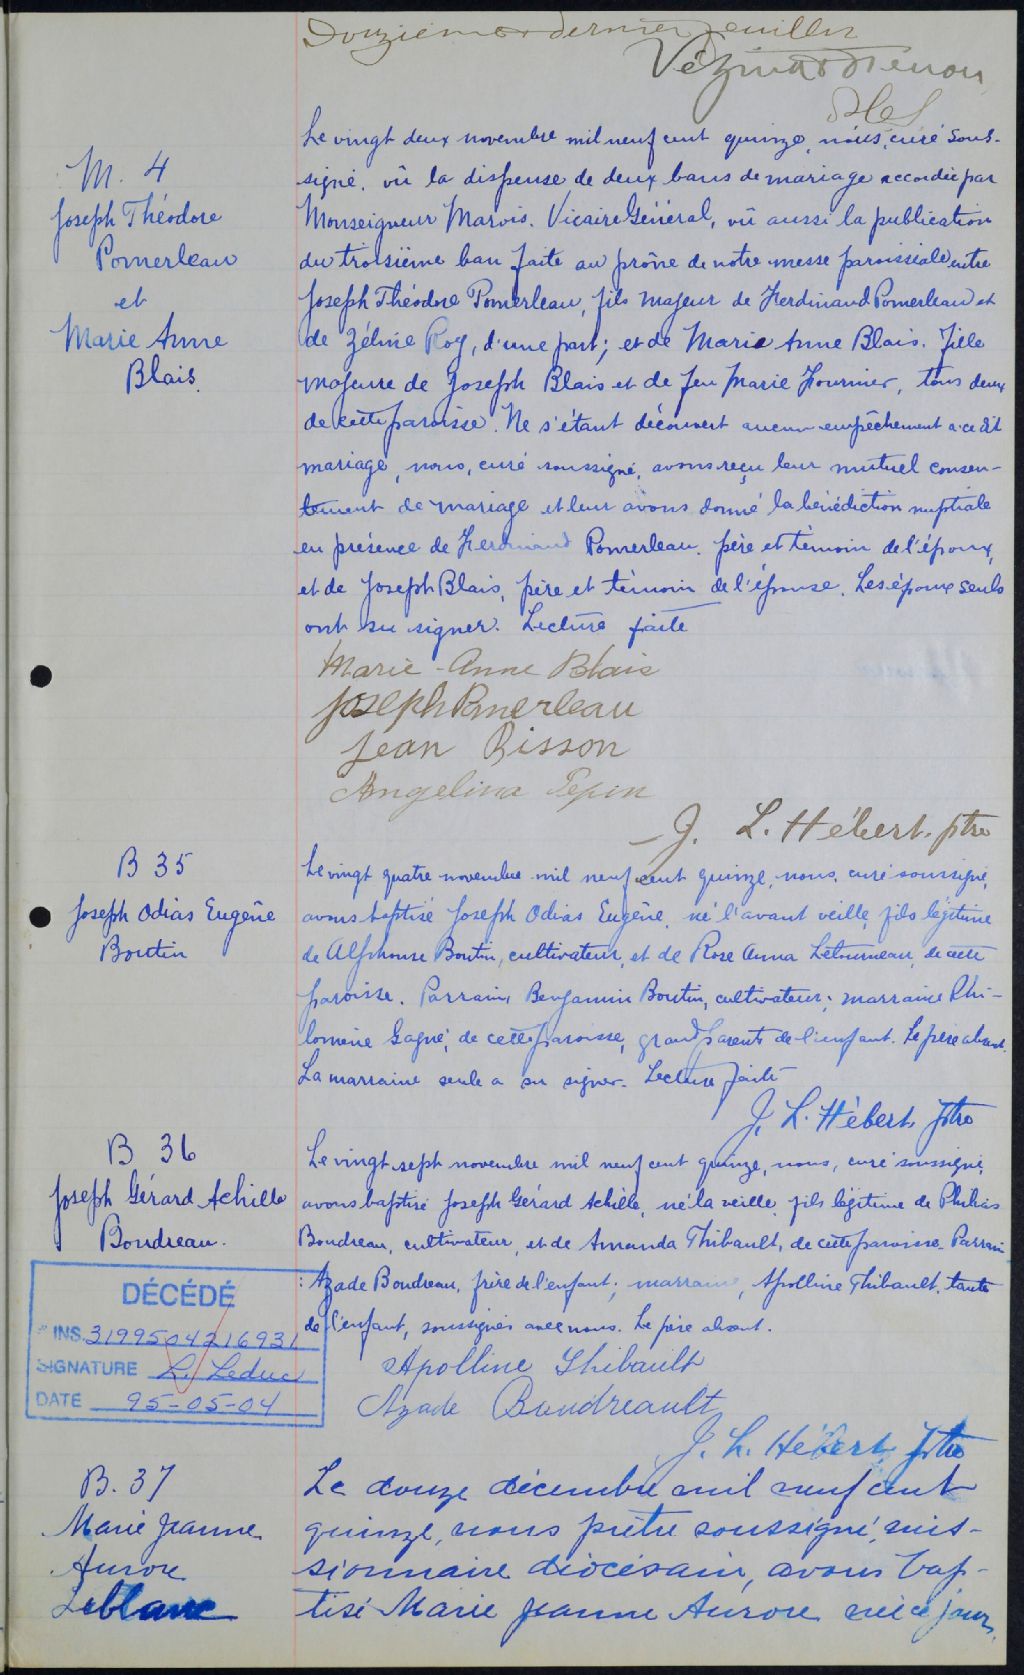 Douzième & dernier feuillet
Vézina
M. 4
Joseph Théodore
Pomerleau
et
Marie Anne
Blais.
Le vingt deux novembre mil neuf cent quinze, nous, curé sous-
signé, vû la dispense de deux bans de mariage accordée par
Monseigneur Marois. Vicaire Général, vû aussi la publication
du troisième ban faite au prône de notre messe paroissiale entre
Joseph Théodore Pomerleau, fils majeur de Ferdinand Pomerleau et
de Zéline Roy, d'une part; et de Marie Anne Blais. fille
majeure de Joseph Blais et de feu Marie Fournier, tous deux
de cette paroisse. Ne s'étant découvert aucun empêchement a ce dit
mariage, nous, curé soussigné, avons reçu leur mutuel consen-
tement de mariage et leur avons donné la bénédiction nuptiale
en présence de Ferdinand Pomerleau. père et témoin de l'époux,
et de Joseph Blais, père et témoin de l'épouse. Les époux seuls
ont su signer. Lecture faite
Marie-Anne Blais
Joseph Pomerleau
Jean Bisson
Angelina Pepin
J. L. Hébert. ptre
B 35
Joseph Odias Eugène
Boutin
Le vingt quatre novembre mil neuf cent quinze, nous, curé soussigné,
avons baptisé Joseph Odias Eugène, né l'avant veille, fils légitime
de Alphonse Boutin, cultivateur, et de Rose Anna Letourneau, de cette
paroisse. Parrain, Benjamin Boutin, cultivateur; marraine Phi-
lomène Gagné, de cette paroisse, grand parents de l'enfant. Le père absent.
La marraine seule a su signer. Lecture faite
J. L. Hébert Ptre
B 36
Joseph Gérard Achille
Boudreau.
Le vingt sept novembre mil neuf cent quinze, nous, curé soussigné,
avons baptisé Joseph Gérard Achille, né la veille, fils légitime de Philias
Boudreau, cultivateur, et de Amanda Thibault, de cette paroisse. Parrain
: Azade Boudreau, frère de l'enfant; marraine, Apolline Thibault, tante
de l'enfant, soussignés avec nous. Le père absent.
Apolline Thibault
Azade Boudreault
J. L. Hébert Ptre
DÉCÉDÉ
INS. 3199504216931
SIGNATURE L. Leduc
DATE 95-05-04
B. 37
Marie Jeanne
Aurore
Leblanc
Le douze décembre mil neuf cent
quinze, nous prêtre soussigné, mis-
sionnaire diocésain, avons bap-
tisé Marie Jeanne Aurore née ce jour,